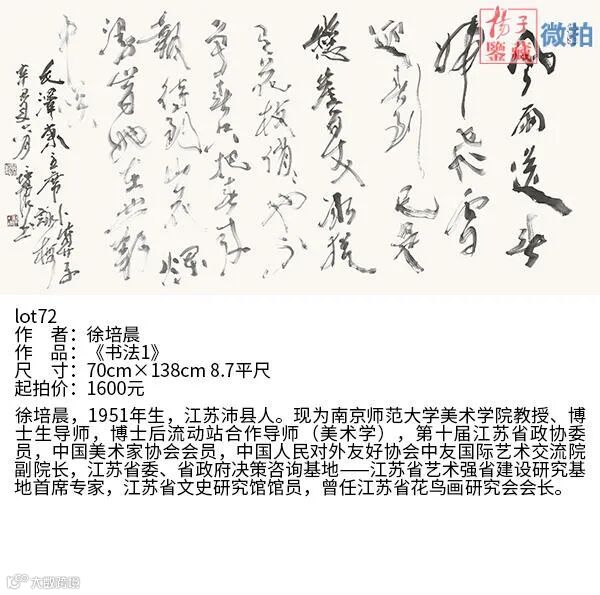 風雨送春
歸飛雪
迎春到
已是
懸崖百丈冰猶
有花枝俏也不
爭春只把春來
報待到山花爛
中笑
毛澤東主席卜算子詠梅
揚子
鑒藏
微拍
lot72
作 者：徐培晨
作 品：《书法1》
尺 寸：70cm×138cm 8.7平尺
起拍价：1600元
徐培晨，1951年生，江苏沛县人。现为南京师范大学美术学院教授、博
士生导师，博士后流动站合作导师（美术学），第十届江苏省政协委
员，中国美术家协会会员，中国人民对外友好协会中友国际艺术交流院
副院长，江苏省委、省政府决策咨询基地——江苏省艺术强省建设研究基
地首席专家，江苏省文史研究馆馆员，曾任江苏省花鸟画研究会会长。
大数跨境